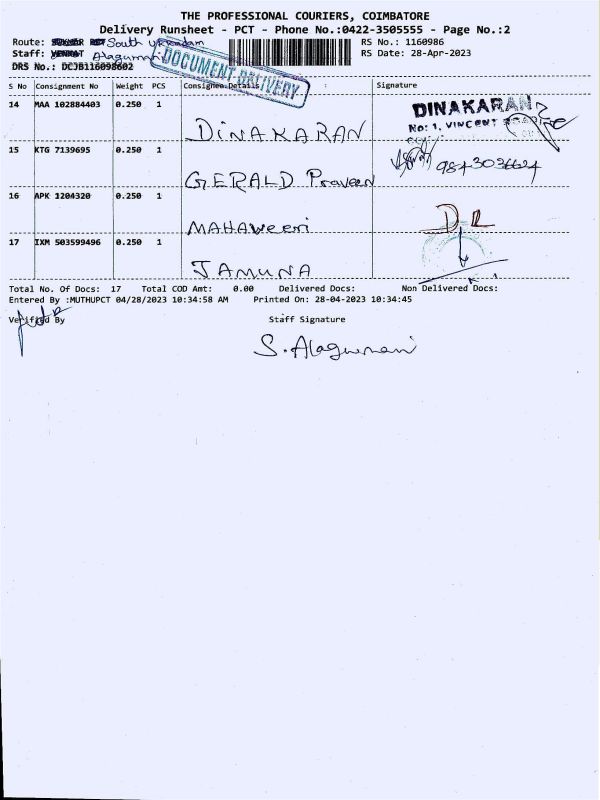 THE PROFESSIONAL COURIERS, COIMBATORE
Delivery Runsheet - PCT - Phone No.:0422-3505555 - Page No.:2
Route: South Ukkadam RS No.: 1160986
Staff: Alagumani RS Date: 28-Apr-2023
DRS No.: DCJB116098602
DOCUMENT DELIVERY
S No Consignment No Weight PCS Consignee Details : Signature
14 MAA 102884403 0.250 1
DINAKARAN DINAKARAN
No: 1, VINCENT
15 KTG 7139695 0.250 1
GERALD Praveen
16 APK 1204320 0.250 1
MAHAWeeri D.R
17 IXM 503599496 0.250 1
JAMUNA
Total No. Of Docs: 17 Total COD Amt: 0.00 Delivered Docs: Non Delivered Docs:
Entered By :MUTHUPCT 04/28/2023 10:34:58 AM Printed On: 28-04-2023 10:34:45
Verified By Staff Signature
S. Alagumani